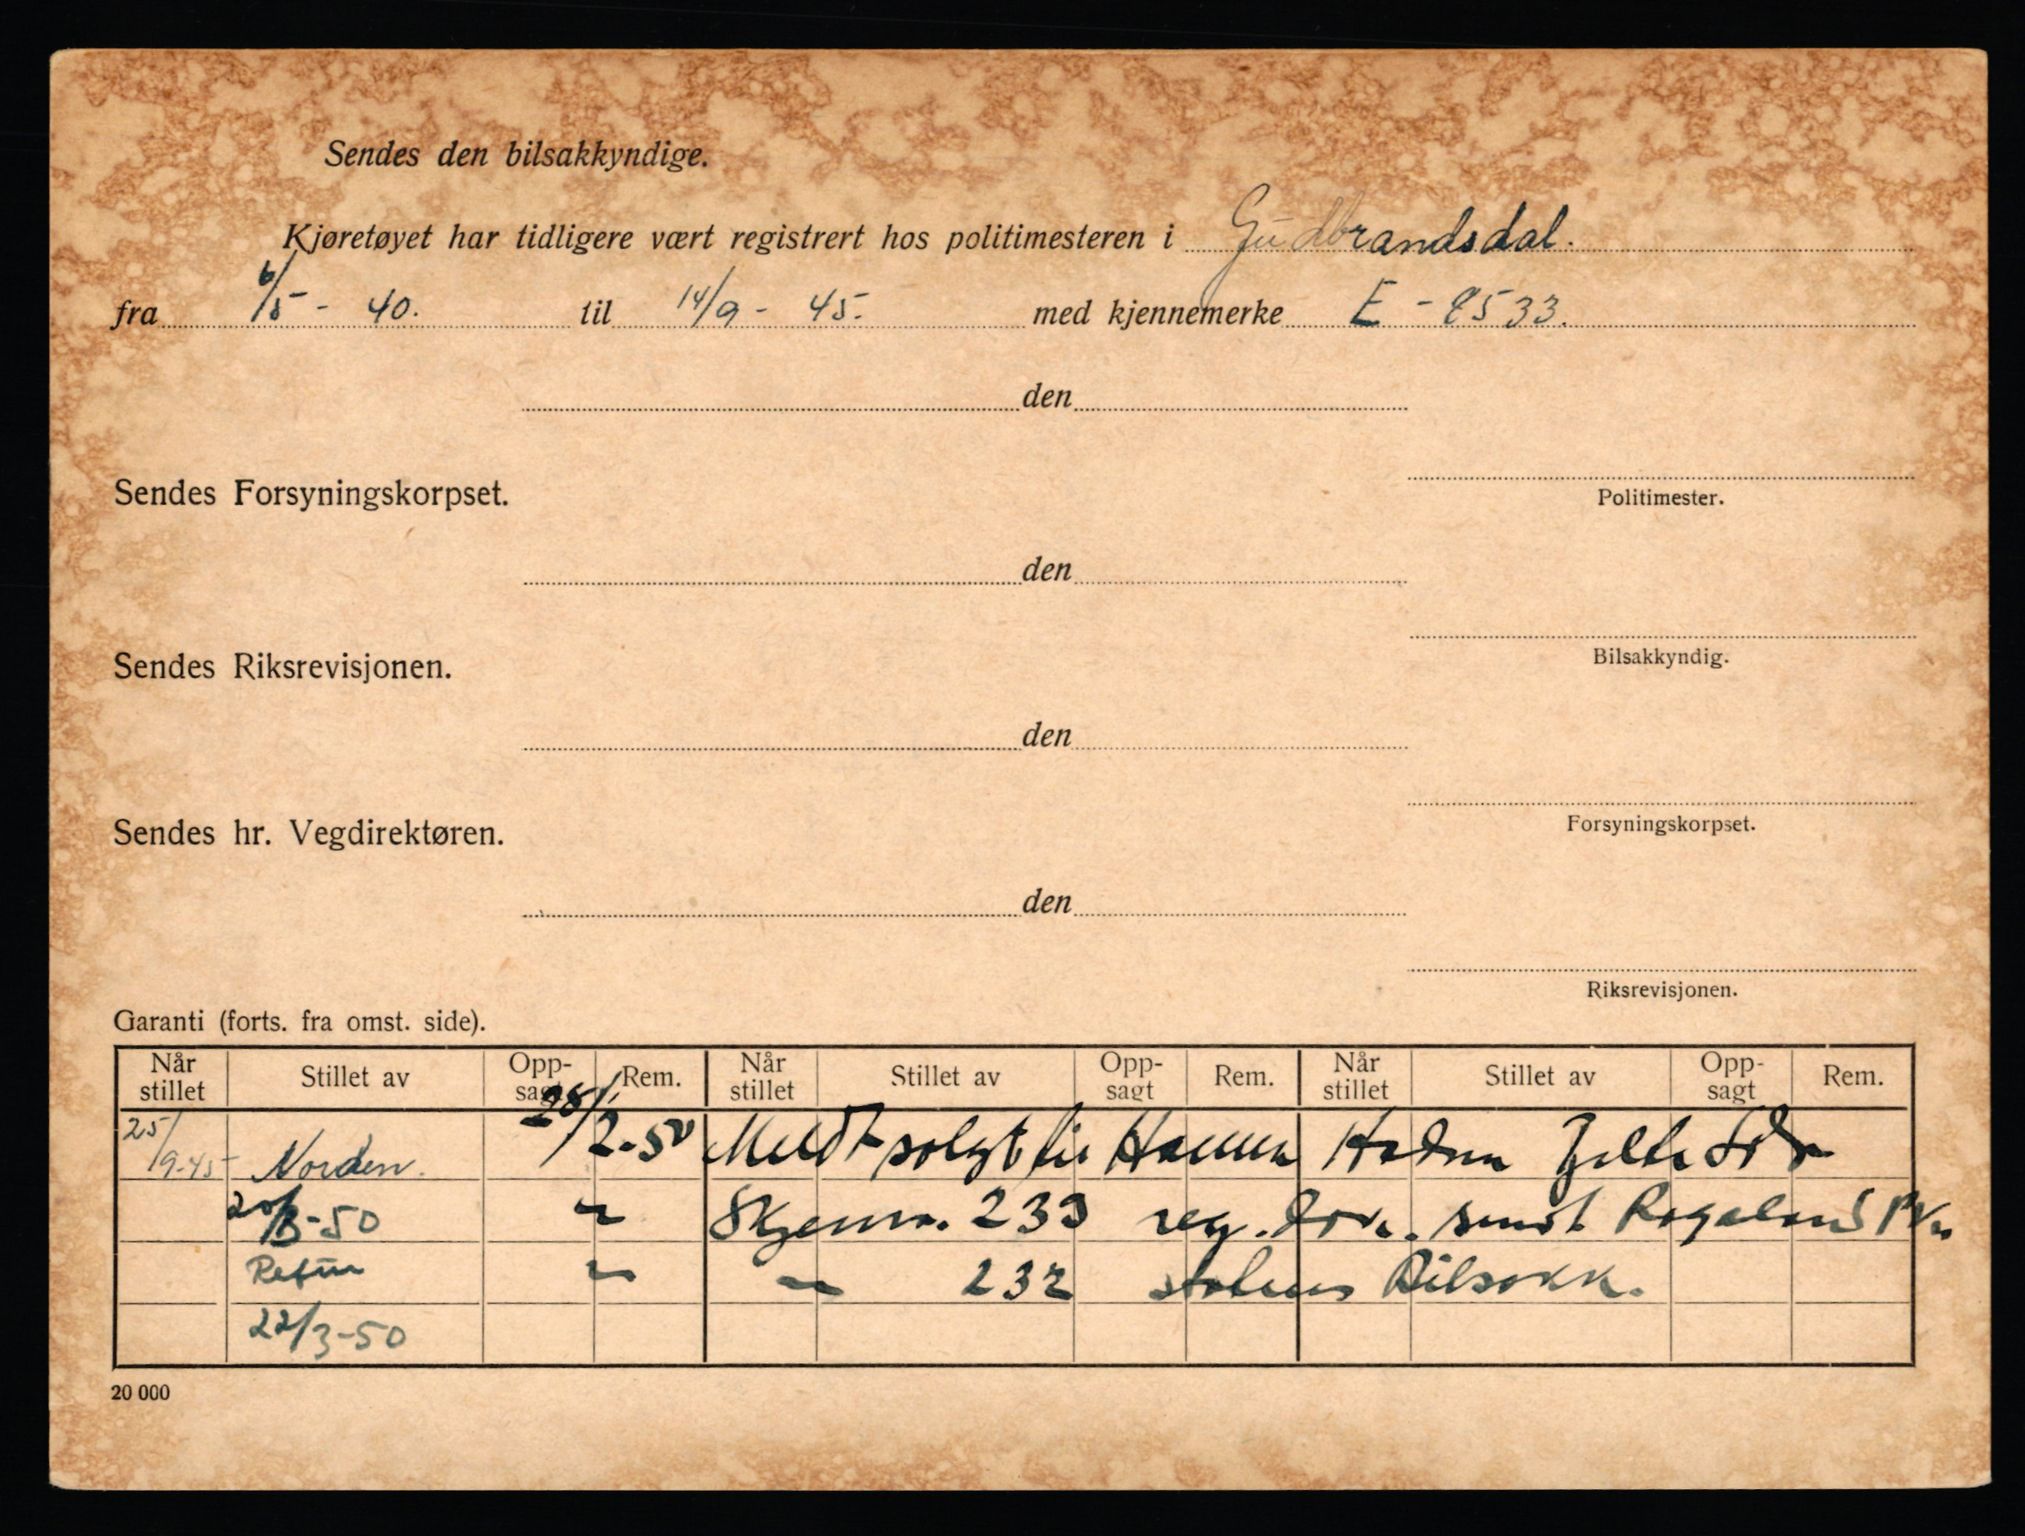 Sendes den bilsakkyndige.
Kjøretøyet har tidligere vært registrert hos politimesteren i Gudbrandsdal.
fra 6/5 - 40. til 14/9 - 45. med kjennemerke E - 8533.
den
Sendes Forsyningskorpset.
Politimester.
den
Sendes Riksrevisjonen.
Bilsakkyndig.
den
Sendes hr. Vegdirektøren.
Forsyningskorpset.
den
Riksrevisjonen.
Garanti (forts. fra omst. side).
Når stillet Stillet av Opp-sagt Rem. Når stillet Stillet av Opp-sagt Rem. Når stillet Stillet av Opp-sagt Rem.
25/9-45 Norden. 28/2-50 Meldt solgt til
/3-50 " Skjema. 233 reg. sendt Rogaland
Retur " " 232 Bilsakk.
22/3-50
20 000